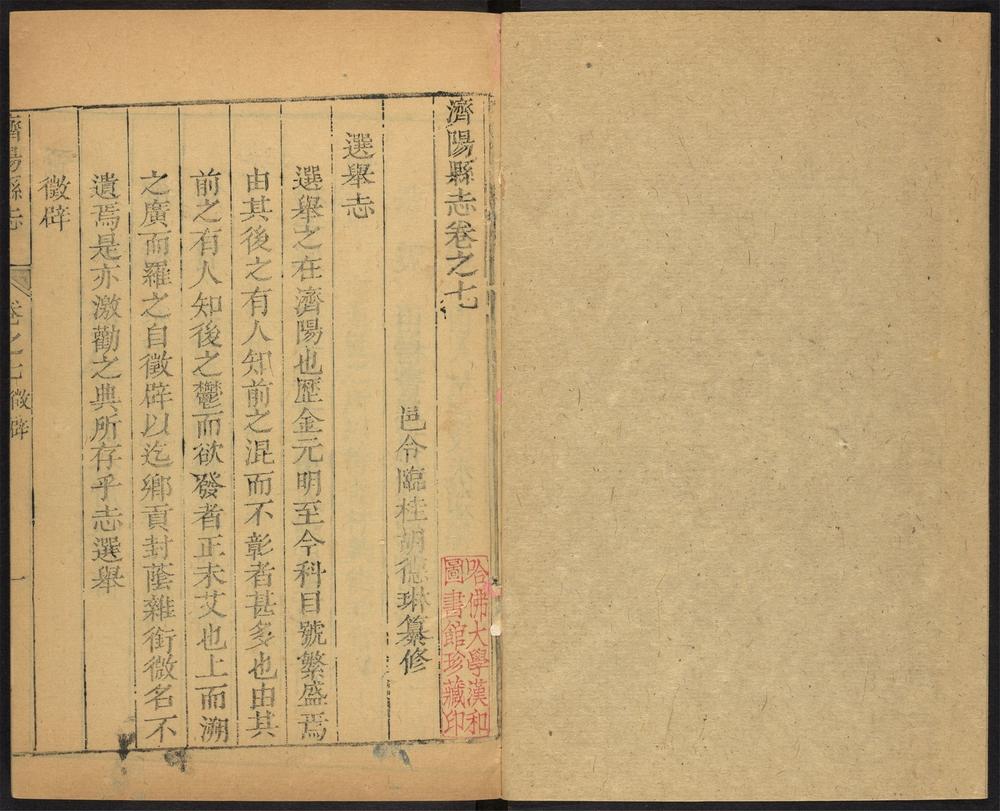 濟陽縣志卷之七
邑令臨桂胡德琳纂修
選舉志
選舉之在濟陽也歷金元明至今科目號繁盛焉
由其後之有人知前之混而不彰者甚多也由其
前之有人知後之鬱而欲發者正未艾也上而溯
之廣而羅之自徵辟以迄鄉貢封蔭雜銜微名不
遺焉是亦激勸之典所存乎志選舉
徵辟
濟陽縣志
卷之七 徵辟
一
哈佛大學漢和
圖書館珍藏印